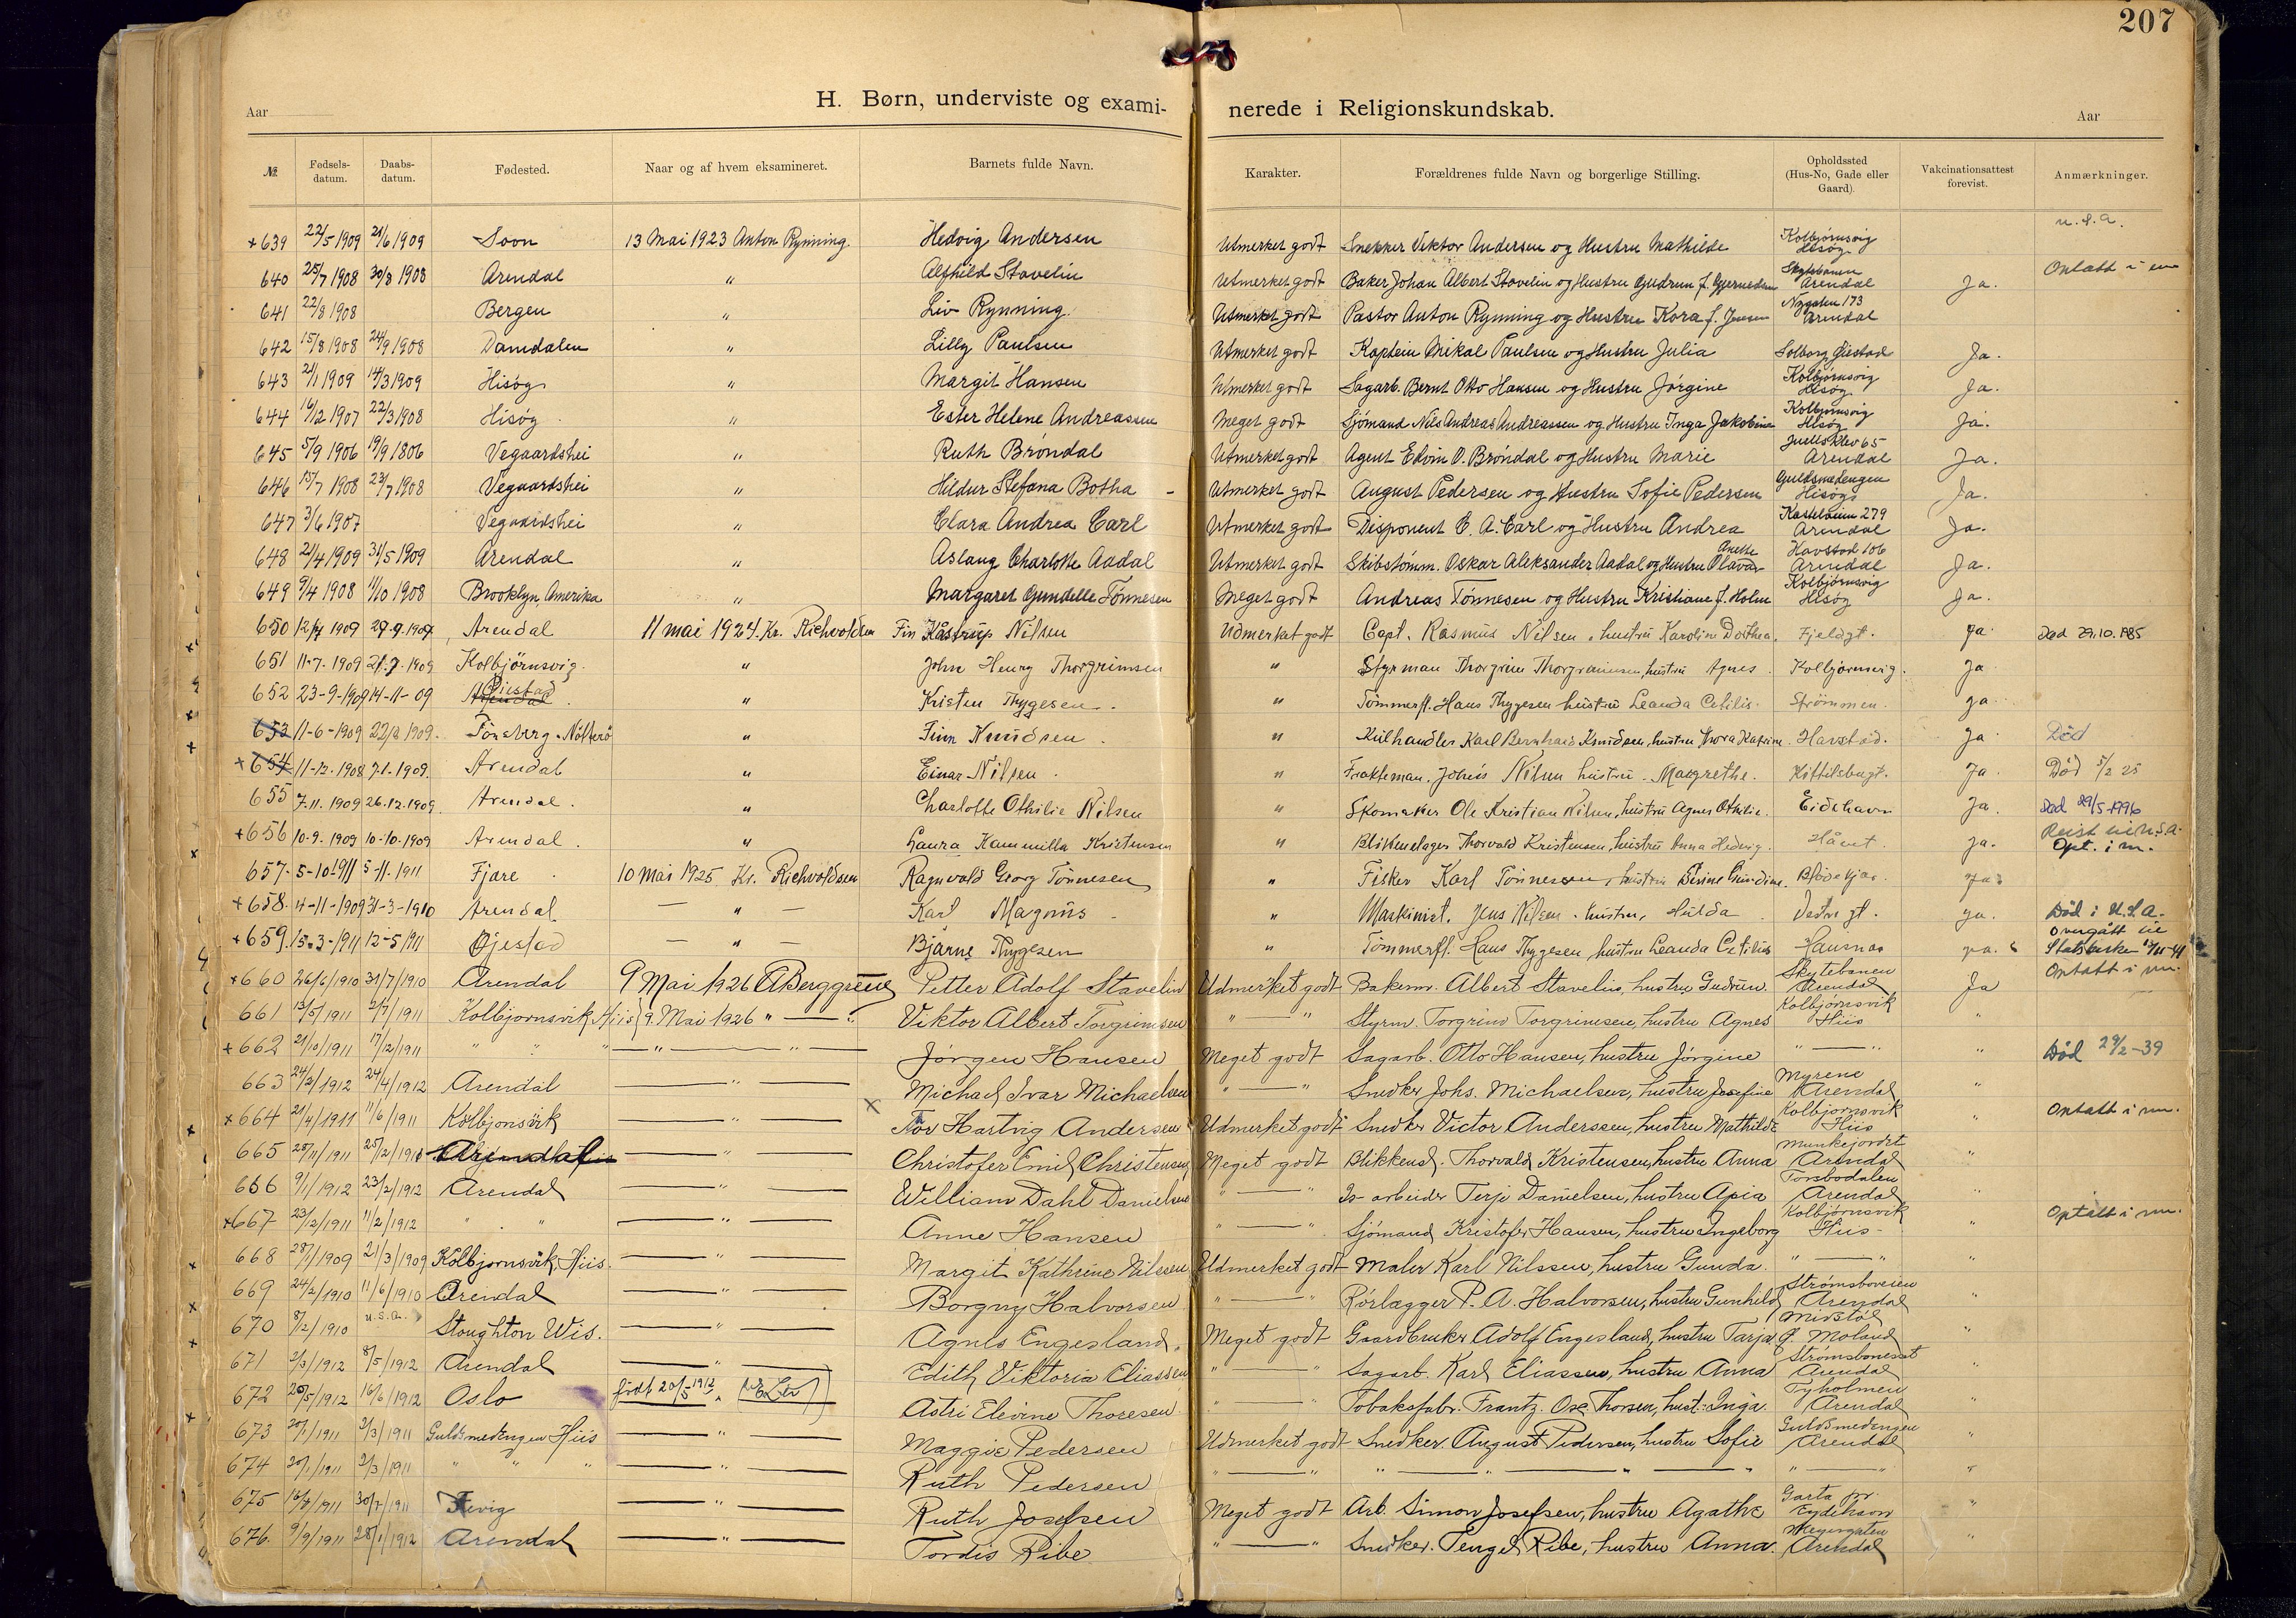 207
H. Børn, underviste og exami- nerede i Religionskundskab.
Aar Aar
№ Fødsels-datum. Daabs-datum. Fødested. Naar og af hvem eksamineret. Barnets fulde Navn. Karakter. Forældrenes fulde Navn og borgerlige Stilling. Opholdssted (Hus-No, Gade eller Gaard). Vakcinationsattest forevist. Anmærkninger.
+639 22/5 1909 21/6 1909 Soon 13 Mai 1923 Anton Rynning. Hedvig Andersen Utmerket godt Snekker Viktor Andersen og Hustru Mathilde Kolbjørnsvig Hisøy u.s.a.
640 25/7 1908 30/8 1908 Arendal " Alfhild Stavelin Utmerket godt Baker Johan Albert Stavelin og Hustru Gudrun f. Skytebanen Arendal Ja.
641 22/8 1908 Bergen " Liv Rynning. Utmerket godt Pastor Anton Rynning og Hustru Kora f. Jensen Nygaten 173 Arendal
642 15/8 1908 24/9 1908 Damdalen " Lilly Paulsen Utmerket godt Kaptein Mikal Paulsen og Hustru Julia Solborg Øiestad Ja.
643 21/1 1909 14/3 1909 Hisøy " Margit Hansen Utmerket godt Sagarb. Bernt Otto Hansen og Hustru Jørgine Kolbjørnsvig Hisøy Ja.
644 16/12 1907 22/3 1908 Hisøy " Ester Helene Andreassen Meget godt Sjømand Nils Andreas Andreassen og Hustru Inga Jakobine Kolbjørnsvig Hisøy Ja.
645 5/9 1906 19/9 1806 Vegaardshei " Ruth Brøndal Utmerket godt Agent Edvin O. Brøndal og Hustru Marie Juellsklev 65 Arendal Ja.
646 15/7 1908 23/7 1908 Vegaardshei " Hildur Stefana Botha - Utmerket godt August Pedersen og Hustru Sofie Pedersen Guldsmedengen Hisøy Ja.
647 3/6 1907 Vegaardshei " Clara Andrea Carl Utmerket godt Disponent C. A. Carl og Hustru Andrea Kastelveien 279 Arendal Ja.
648 21/4 1909 31/5 1909 Arendal " Aslaug Charlotte Aadal Utmerket godt Skibstømm. Oskar Aleksander Aadal og Hustru Olava Anette Havstad 106 Arendal Ja.
649 9/4 1908 11/10 1908 Brooklyn, Amerika " Margaret Gundelle Tønnesen Meget godt Andreas Tønnesen og Hustru Kristiane f. Holm Kolbjørnsvig Hisøy Ja.
650 1909 29.9.1909 Arendal 11 mai 1924. Kr. Richvoldsen Fin Kåstrup Nilsen Udmerket godt Capt. Rasmus Nilsen, hustru Karoline Dorthea. Fjeldgt. Ja. Død 29.10.1985
651 11.7.1909 21.9.1909 Kolbjørnsvig. " John Henry Thorgrimsen " Styrman Thorgrim Thorgrimsen, hustru Agnes. Kolbjørnsvig. Ja
652 23-9-1909 14-11-09 Øiestad " Kristen Thygesen. " Tømmerfl. Hans Thygesen hustru Leanda Cetilie. Strømmen. Ja
653 11-6-1909 22/8 1909. Tønsberg - Nøtterø " Finn Knudsen. " Kulhandler Karl Bernhard Knudsen, hustru Thora Katrine. Havstad. Ja Død
+654 11-12.1908 7.1.1909. Arendal " Einar Nilsen. " Frakteman. Johns Nilsen hustru Margrethe. Kittilsbugt. Ja. Død 5/2 25
655 7.11.1909 26.12.1909. Arendal. " Charlotte Othilie Nilsen " Skomaker Ole Kristian Nilsen, hustru Agnes Othilie. Eidehavn Ja. Død 29/5-1996
+656 10-9.1909 10-10-1909 Arendal. " Laura Kammilla Kristensen " Blikkenslager Thorvald Kristensen, hustru Anna Hedevig. Håvet. Ja. Reist til U.S.A. Opt. i m.
657. 5-10-1911 5-11.1911 Fjære 10 mai 1925 Kr. Richvoldsen Ragnvald Georg Tønnesen " Fisker Karl Tønnesen, hustru Ja.
+658. 4-11-1909 31-3-1910 Arendal. — " — Karl Magnus " Maskinist. Jens Nilsen. hustru, Hulda Vestregt. Ja. Død i U.S.A.
+659. 15.3-1911 12-5 1911 Øjestad — " — Bjarne Thygesen " Tømmerfl. Hans Thygesen, hustru Leanda Cetilie Hausnæs Ja. Overgått til Statskirke
+660 26/6/1910 31/7/1910 Arendal 9 Mai 1926 A Berggrene Petter Adolf Stavelin Udmerket godt Bakerm. Albert Stavelin, hustru Gudrun. Skytebanen Arendal Ja Optatt i m.
661 13/5/1911 2/7/1911 Kolbjornsvik Hiis 9. Mai 1926 " — " Viktor Albert Torgrimsen " — " Styrm. Torgrim Torgrimsen, hustru Agnes Kolbjørnsvik Hiis "
+662 21/10/1911 17/12/1911 " " " — " — " — Jørgen Hansen Meget godt Sagarb. Otto Hansen, hustru Jørgine " — " " Død 29/2-39
663 24/2/1912 24/4/1912 Arendal — " — Michael Ivar Michaelsen " — " Snedker Johs. Michaelsen, hustru Josefine Myrene Arendal "
+664 21/4/1911 11/6/1911 Kolbjonsvik — " — Tor Hartvig Andersen Udmerket godt Snedker Victor Anderssen, hustru Mathilde Kolbjornsvik Hiis " Optatt i m.
665 28/11/1911 Arendal — " — Christofer Emil Christensen Meget godt Blikkensl. Thorvald Kristensen, hustru Anna Munkejordet Arendal "
666 9/1/1912 23/2/1912 Arendal — " — William Dahl Danielsen " — " Is-arbeider Terje Danielsen, hustru Apia Torsbodalen Arendal "
+667 23/12/1911 11/2/1912 " " — " — Anne Hansen " — " Sjømand Kristofer Hansen, hustru Ingeborg Kolbjørnsvik Hiis - " Optatt i m.
668 28/1/1909 21/3/1909 Kolbjornsvik, Hiis. — " — Margit Kathrine Nilssen Udmerket godt Maler Karl Nilssen, hustru Gunda. " — " "
669 24/2/1910 11/6/1910 Arendal — " — Borgny Halvorsen " — " Rørlægger P. A. Halvorsen, hustru Gunhild Strømsboveien Arendal "
670 8/2/1910 u.s.a. Stoughton Wis. — " — Agnes Engesland. Meget godt Gaardbruker Adolf Engesland, hustru Tarja Mivstøl Ø. Moland "
671 2/3/1912 8/5/1912 Arendal — " — Edith Viktoria Eliassen " — " Sagarb. Karl Eliassen, hustru Anna Arendal "
672 20/5/1912 16/6/1912 Oslo født 20/5 1912 " Astri Elevine Thoresen " — " Tobaksfabr. Frantz. Osc. Thorsen, hust. Inga. Tyholmen Arendal "
673 20/1/1911 2/3/1911 Guldsmedengen Hiis — " — Maggie Pedersen Udmerket godt Snedker. August Pedersen, hustru Sofie Guldsmedengen Arendal "
674 20/1/1911 2/3/1911 " " " — " — Ruth Pedersen " — " " — " — " — " " — " "
675 16/4/1911 30/7/1911 Fevig — " — Ruth Josefsen Meget godt Arb. Simon Josefsen, hustru Agathe Garta pr. Eydehavn "
676. 9/9/1911 28/1/1912 Arendal — " — Tordis Ribe " — " Snedker. Tengel Ribe, hustru Anna. Meyergaten Arendal "